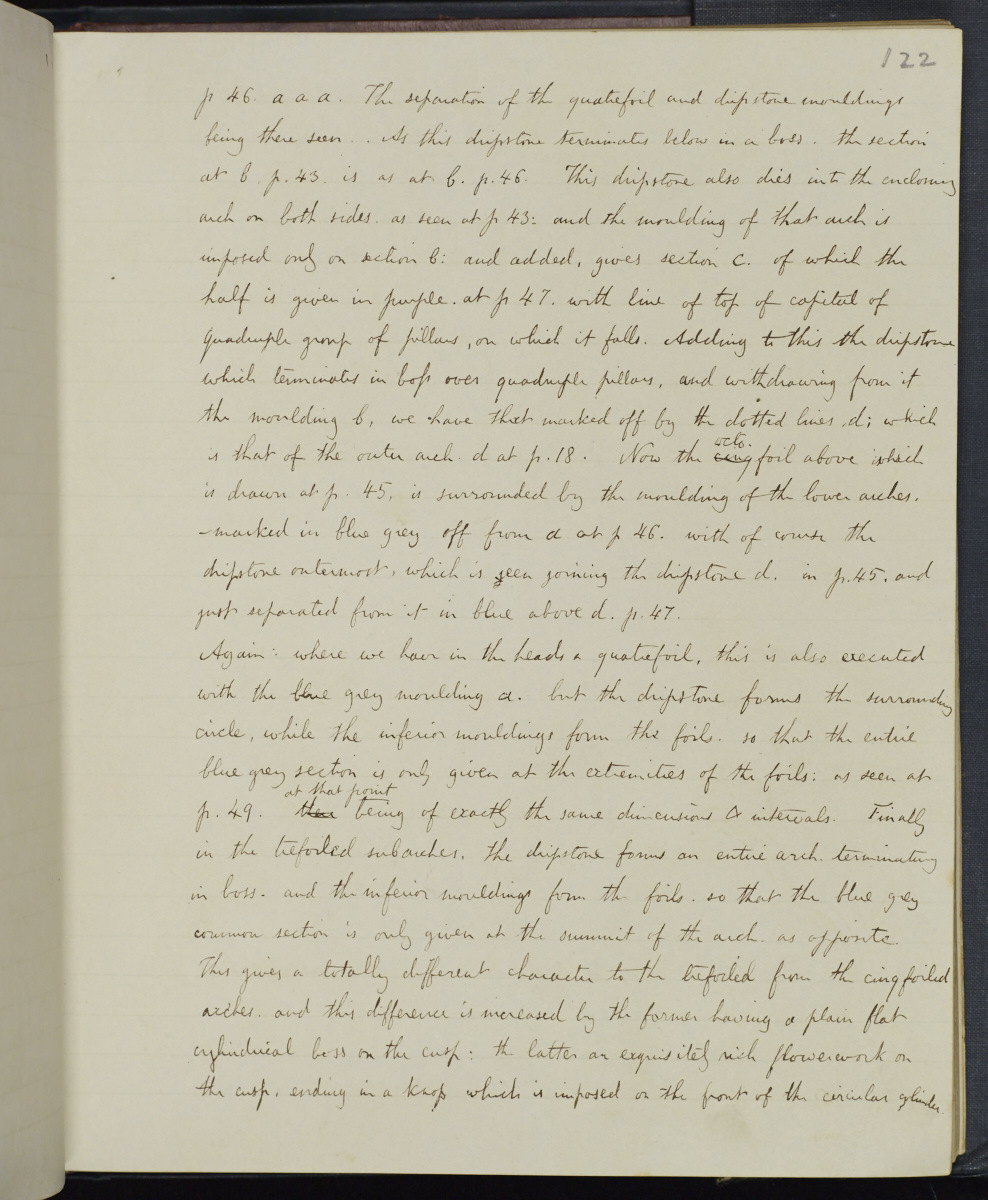 122
p 46. a a a. The separation of the quatrefoil and dripstone mouldings
being there seen. . As this dripstone terminates below in a boss. the section
at b p. 43. is as at b. p. 46. This dripstone also dies into the enclosing
arch on both sides. as seen at p 43: and the moulding of that arch is
imposed only on section b: and added, gives section c. of which the
half is given in purple. at p 47. with line of top of capital of
quadruple group of pillars, on which it falls. Adding to this the dripstone
which terminates in boss over quadruple pillars, and withdrawing from it
the moulding b, we have that marked off by the dotted lines, d; which
is that of the outer arch. d at p. 18. Now the cinq octo. foil above which
is drawn at p. 45, is surrounded by the moulding of the lower arches.
- marked in blue grey off from a at p 46. with of course the
dripstone outermost, which is seen joining the dripstone d. in p. 45. and
just separated from it in blue above d. p. 47.
Again: where we have in the heads a quatrefoil, this is also executed
with the blue grey moulding a. but the dripstone forms the surrounding
circle, while the inferior mouldings form the foils. so that the entire
blue grey section is only given at the extremities of the foils: as seen at
at that point
p. 49. then being of exactly the same dimensions & intervals. Finally
in the trefoiled subarches, the dripstone forms an entire arch. terminating
in boss. and the inferior mouldings form the foils. so that the blue grey
common section is only given at the summit of the arch. as opposite.
This gives a totally different character to the trefoiled from the cinqfoiled
arches. and this difference is increased by the former having a plain flat
cylindrical boss on the cusp: the latter an exquisitely rich flowerwork on
the cusp, ending in a knop which is imposed on the front of the circular cylinder.